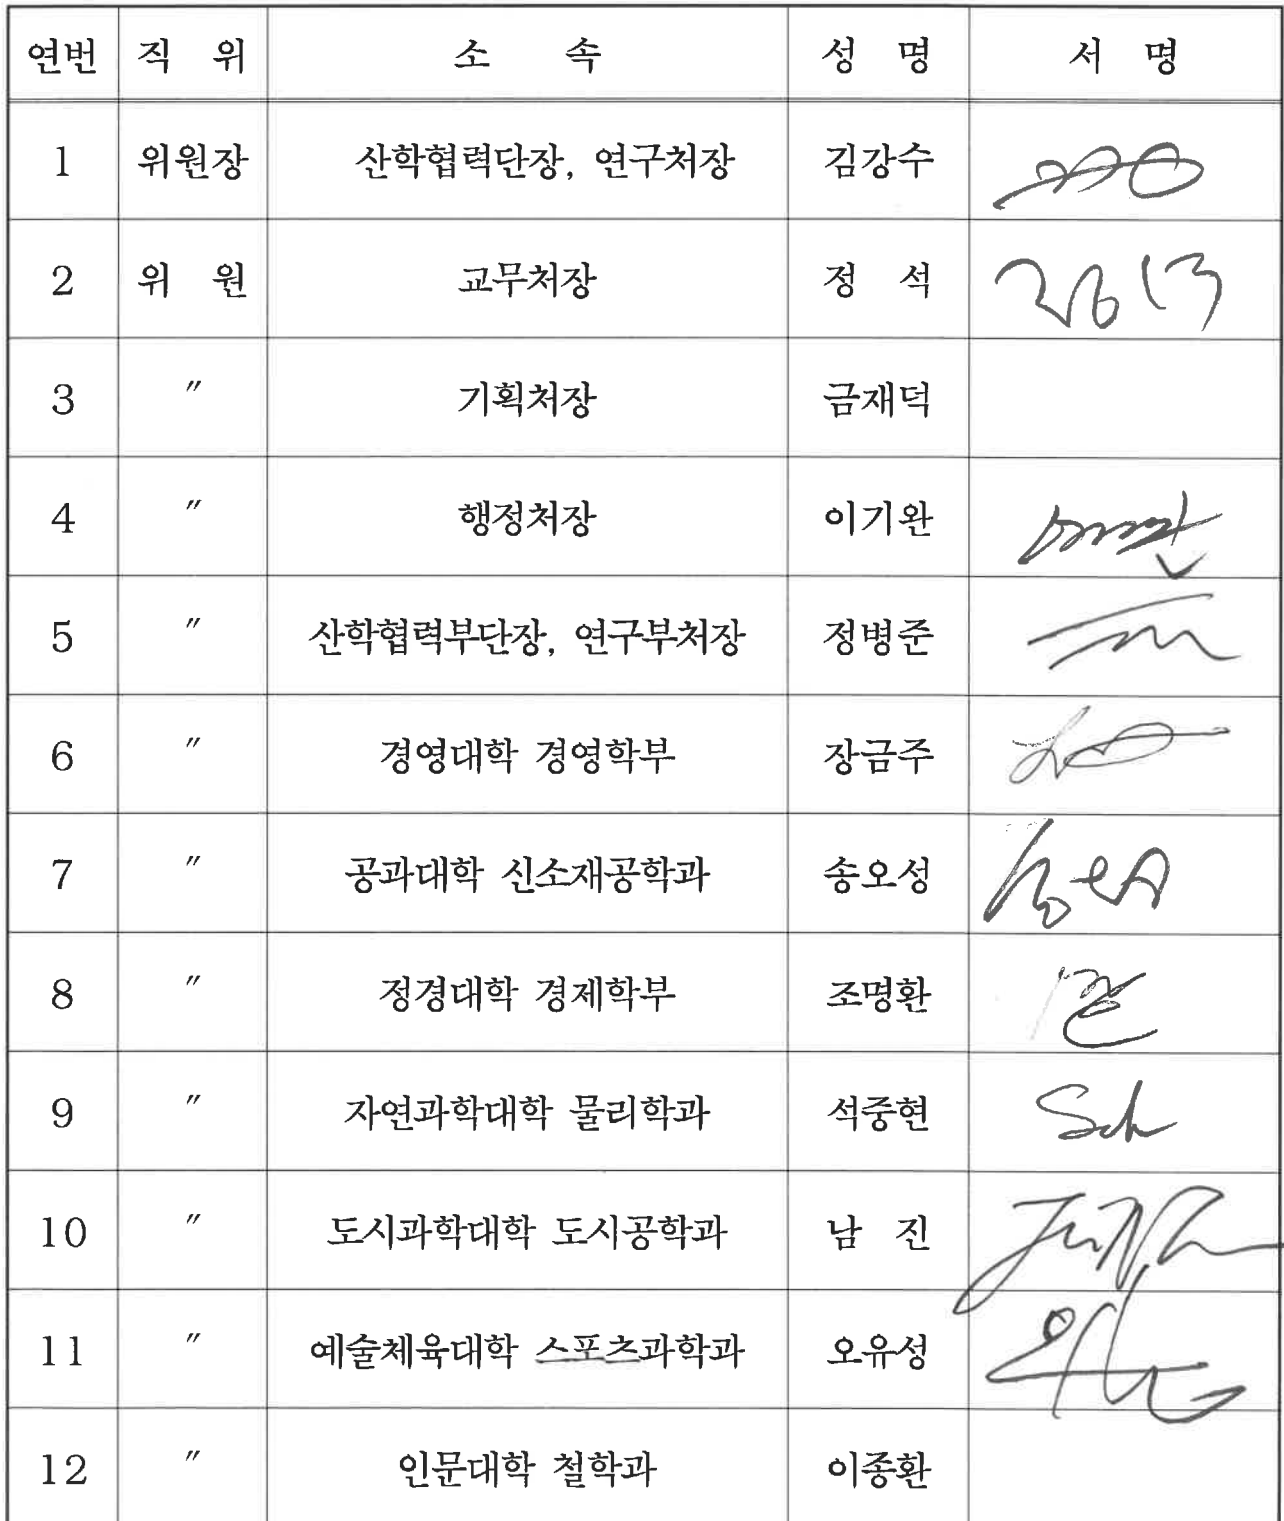 연번 직 위 소 속 성 명 서 명
1 위원장 산학협력단장, 연구처장 김강수
2 위 원 교무처장 정 석
3 〃 기획처장 금재덕
4 〃 행정처장 이기완
5 〃 산학협력부단장, 연구부처장 정병준
6 〃 경영대학 경영학부 장금주
7 〃 공과대학 신소재공학과 송오성
8 〃 정경대학 경제학부 조명환
9 〃 자연과학대학 물리학과 석중현
10 〃 도시과학대학 도시공학과 남 진
11 〃 예술체육대학 스포츠과학과 오유성
12 〃 인문대학 철학과 이종환